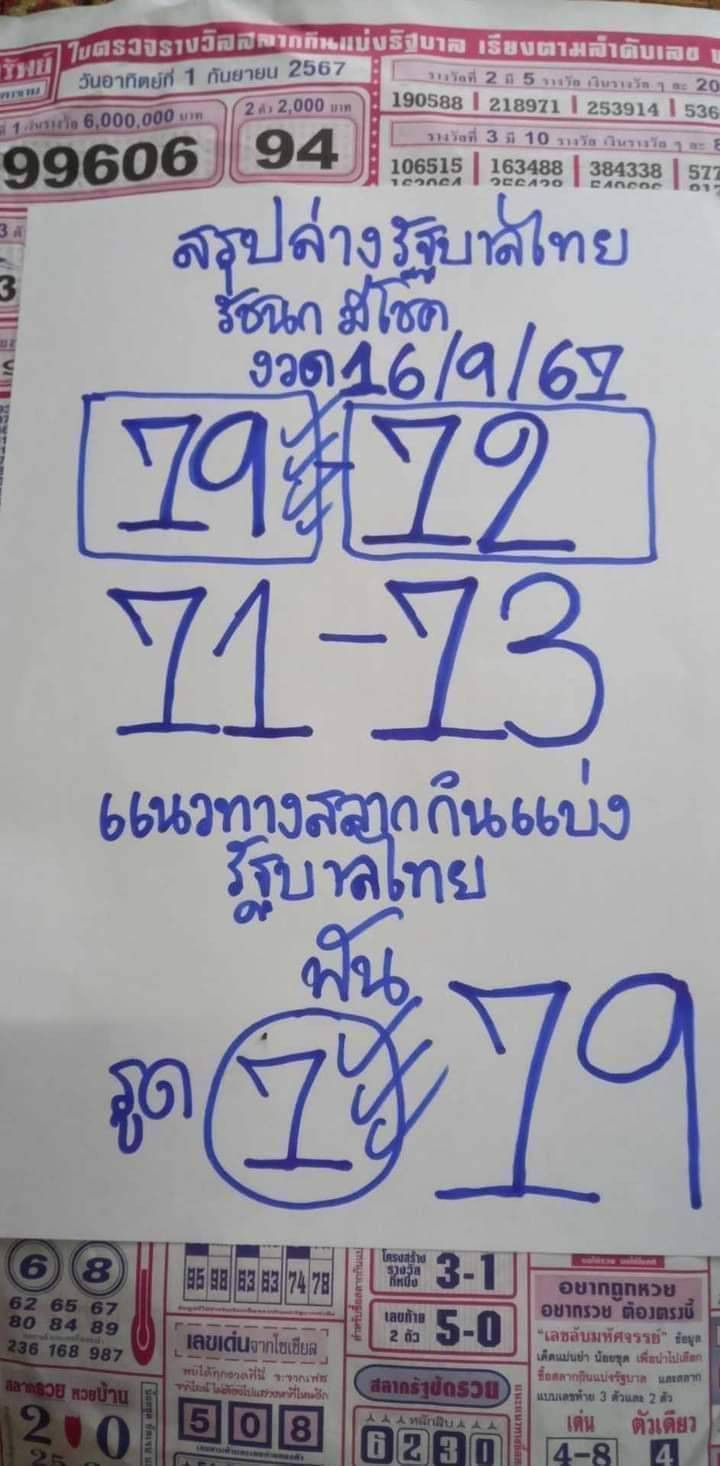 ใบตรวจรางวัลสลากกินแบ่งรัฐบาล เรียงตามลำดับเลข
วันอาทิตย์ที่ 1 กันยายน 2567
รางวัลที่ 2 มี 5 รางวัล เงินรางวัล ๆ ละ 20
190588 218971 253914 536
6,000,000 บาท
2 ตัว 2,000 บาท
99606
94
รางวัลที่ 3 มี 10 รางวัล เงินรางวัล ๆ ละ 8
106515 163488 384338 577
สรุปล่างรัฐบาลไทย
รัชนก มีโชค
งวด 16/9/67
79 - 72
71 - 73
แนวทางสลากกินแบ่ง
รัฐบาลไทย
ฟัน
รูด 7 79
6 8
62 65 67
80 84 89
236 168 987
สลากรวย หวยบ้าน
2 0
95 98 63 63 74 78
เลขเด่นจากโซเชียล
5 0 8
โครงสร้าง
รางวัล
ที่หนึ่ง
3-1
เลขท้าย
2 ตัว
5-0
สลากรัฐชักรวน
6 2 3 0
อยากถูกหวย
อยากรวย ต้องตรงนี้
"เลขลับมหัศจรรย์" ข้อมูล
เด็ดแม่นยำ น้อยชุด เพื่อนำไปเลือก
ซื้อสลากกินแบ่งรัฐบาล และสลาก
แบบเลขท้าย 3 ตัวและ 2 ตัว
เด่น ตัวเดียว
4-8 4